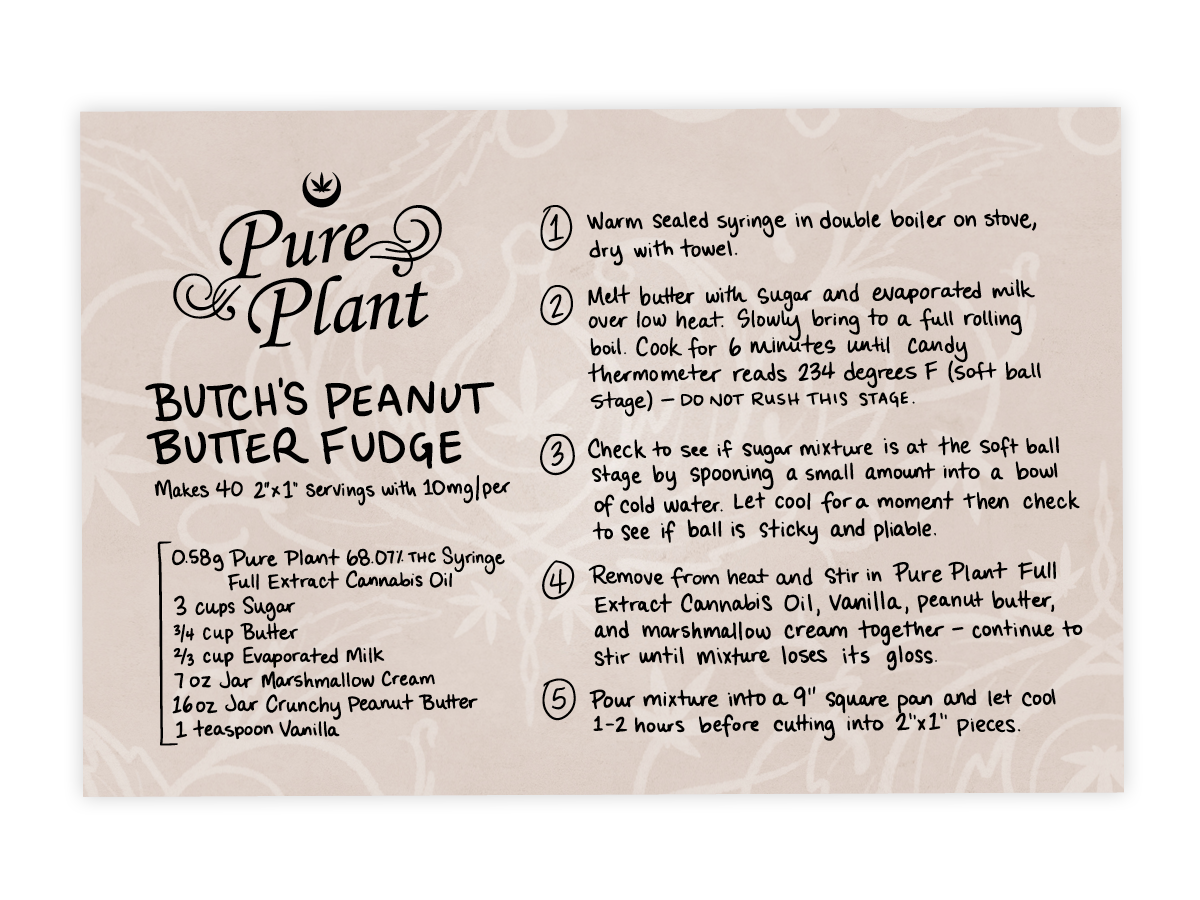 Pure
Plant
BUTCH'S PEANUT
BUTTER FUDGE
Makes 40 2"x1" servings with 10mg/per
0.58g Pure Plant 68.07% THC Syringe
Full Extract Cannabis Oil
3 cups Sugar
3/4 cup Butter
2/3 cup Evaporated Milk
7 oz Jar Marshmallow Cream
16 oz Jar Crunchy Peanut Butter
1 teaspoon Vanilla
1 Warm sealed syringe in double boiler on stove,
dry with towel.
2 Melt butter with sugar and evaporated milk
over low heat. Slowly bring to a full rolling
boil. Cook for 6 minutes until candy
thermometer reads 234 degrees F (soft ball
stage) – DO NOT RUSH THIS STAGE.
3 Check to see if sugar mixture is at the soft ball
stage by spooning a small amount into a bowl
of cold water. Let cool for a moment then check
to see if ball is sticky and pliable.
4 Remove from heat and stir in Pure Plant Full
Extract Cannabis Oil, Vanilla, peanut butter,
and marshmallow cream together – continue to
stir until mixture loses its gloss.
5 Pour mixture into a 9" square pan and let cool
1-2 hours before cutting into 2"x1" pieces.